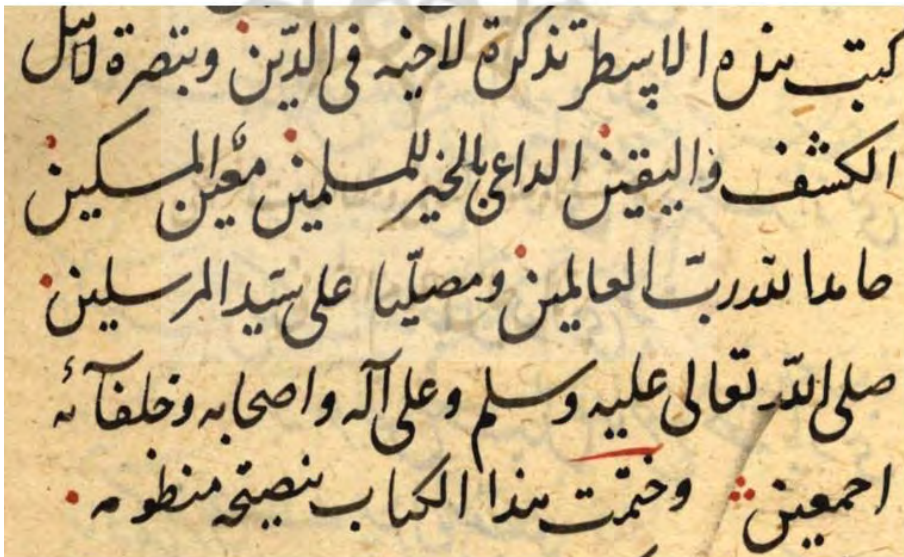 كتبت هذه الاسطر تذكرة لاخيه في الدّين وتبصرة لاهل
الكشف واليقين الداعي بالخير للمسلمين معين المسكين
حامدا لله ربّ العالمين ومصلّيا على سيّد المرسلين
صلى الله تعالى عليه وسلم وعلى آله واصحابه وخلفآئه
اجمعين وختمت هذا الكتاب بنصيحة منظومه